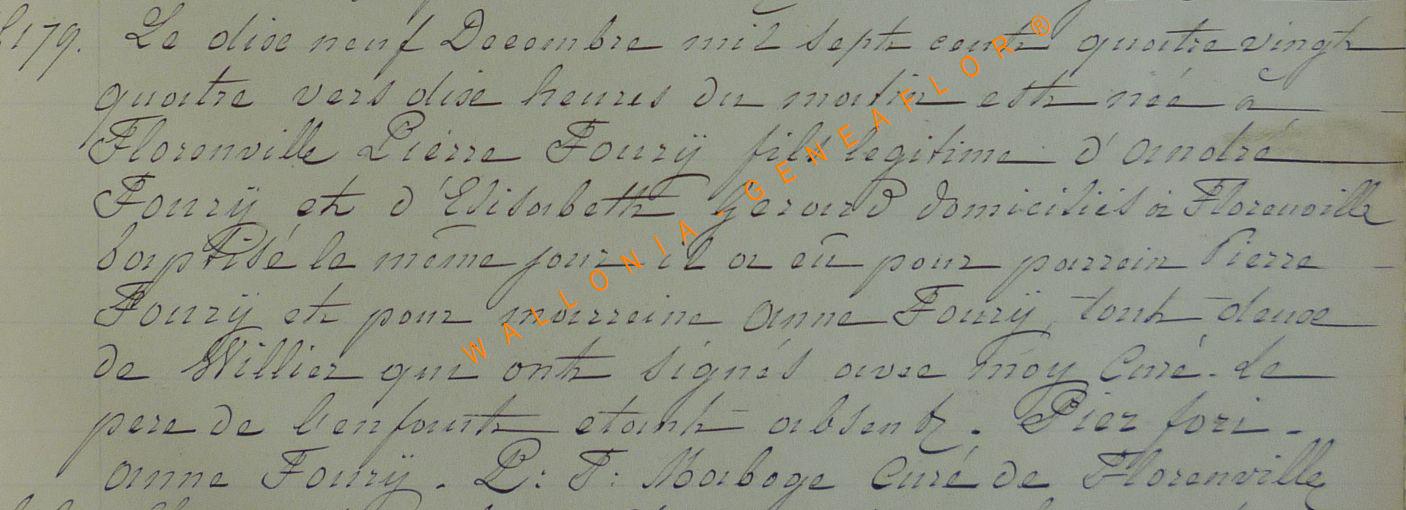 179. Le dixe neuf Decembre mil sept cent quatre vingt
quatre vers dixe heures du matin est née à
Florenville Pierre Fourÿ fils legitime d'André
Fourÿ et d'Elisabeth Gerard domiciliés à Florenville
baptisé le même jour il a eû pour parrein Pierre
Fourÿ et pour marreine Anne Fourÿ, tout deuxe
de Willier qui ont signés avec moy Curé. Le
pere de l'enfant etant absent. Pier fori.
Anne Fourÿ. P: F: Maboge Curé de Florenville
WALLONIA - GENEAFLOR ®